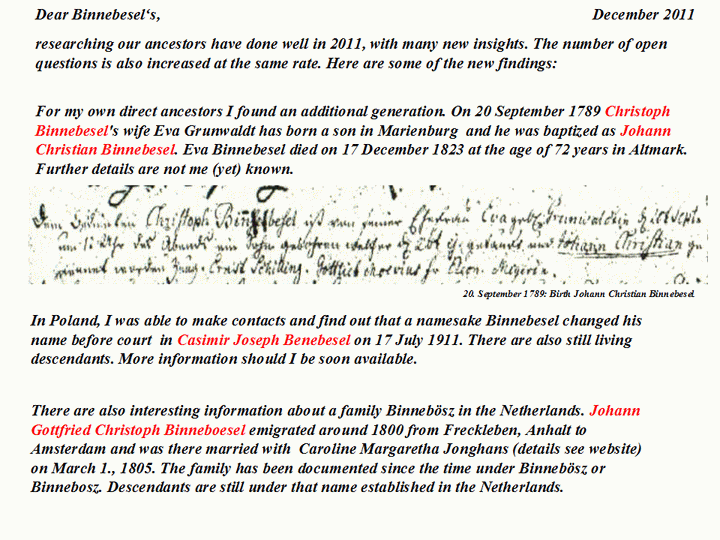 Dear Binnebesel‘s, December 2011
researching our ancestors have done well in 2011, with many new insights. The number of open
questions is also increased at the same rate. Here are some of the new findings:
For my own direct ancestors I found an additional generation. On 20 September 1789 Christoph
Binnebesel's wife Eva Grunwaldt has born a son in Marienburg and he was baptized as Johann
Christian Binnebesel. Eva Binnebesel died on 17 December 1823 at the age of 72 years in Altmark.
Further details are not me (yet) known.
Christoph Binnebesel ist von seiner Ehefrau Eva geb.
des Abends ein Sohn gebohren welcher getauft und Johann Christian
worden
20. September 1789: Birth Johann Christian Binnebesel
In Poland, I was able to make contacts and find out that a namesake Binnebesel changed his
name before court in Casimir Joseph Benebesel on 17 July 1911. There are also still living
descendants. More information should I be soon available.
There are also interesting information about a family Binnebösz in the Netherlands. Johann
Gottfried Christoph Binneboesel emigrated around 1800 from Freckleben, Anhalt to
Amsterdam and was there married with Caroline Margaretha Jonghans (details see website)
on March 1., 1805. The family has been documented since the time under Binnebösz or
Binnebosz. Descendants are still under that name established in the Netherlands.